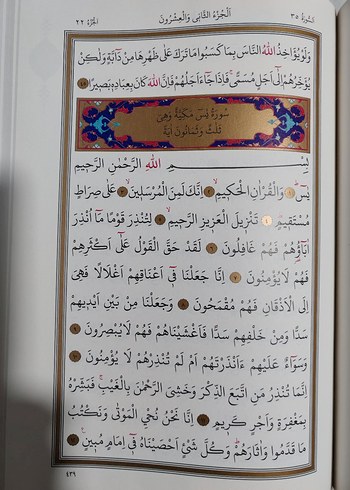 اَلْجُزْءُ الثَّانِى وَالْعِشْرُونَ
وَلَوْ يُؤَاخِذُ اللّٰهُ النَّاسَ بِمَا كَسَبُوا مَا تَرَكَ عَلٰى ظَهْرِهَا مِنْ دَٓابَّةٍ وَلٰكِنْ
يُؤَخِّرُهُمْ اِلٰٓى اَجَلٍ مُسَمًّىۚ فَاِذَا جَٓاءَ اَجَلُهُمْ فَاِنَّ اللّٰهَ كَانَ بِعِبَادِه۪ بَص۪يرًا ﴿٤٥﴾
سُورَةُ يٰسٓ مَكِّيَّةٌ وَهِىَ
ثَلٰثٌ وَثَمَانُونَ اٰيَةً
بِسْمِ اللّٰهِ الرَّحْمٰنِ الرَّح۪يمِ
يٰسٓۜ ﴿١﴾ وَالْقُرْاٰنِ الْحَك۪يمِۙ ﴿٢﴾ اِنَّكَ لَمِنَ الْمُرْسَل۪ينَۙ ﴿٣﴾ عَلٰى صِرَاطٍ
مُسْتَق۪يمٍۜ ﴿٤﴾ تَنْز۪يلَ الْعَز۪يزِ الرَّح۪يمِۙ ﴿٥﴾ لِتُنْذِرَ قَوْمًا مَٓا اُنْذِرَ
اٰبَٓاؤُ۬هُمْ فَهُمْ غَافِلُونَ ﴿٦﴾ لَقَدْ حَقَّ الْقَوْلُ عَلٰٓى اَكْثَرِهِمْ
فَهُمْ لَا يُؤْمِنُونَ ﴿٧﴾ اِنَّا جَعَلْنَا ف۪ٓى اَعْنَاقِهِمْ اَغْلَالًا فَهِىَ
اِلَى الْاَذْقَانِ فَهُمْ مُقْمَحُونَ ﴿٨﴾ وَجَعَلْنَا مِنْ بَيْنِ اَيْد۪يهِمْ
سَدًّا وَمِنْ خَلْفِهِمْ سَدًّا فَاَغْشَيْنَاهُمْ فَهُمْ لَا يُبْصِرُونَ ﴿٩﴾
وَسَوَٓاءٌ عَلَيْهِمْ ءَاَنْذَرْتَهُمْ اَمْ لَمْ تُنْذِرْهُمْ لَا يُؤْمِنُونَ ﴿١٠﴾
اِنَّمَا تُنْذِرُ مَنِ اتَّبَعَ الذِّكْرَ وَخَشِىَ الرَّحْمٰنَ بِالْغَيْبِۚ فَبَشِّرْهُ
بِمَغْفِرَةٍ وَاَجْرٍ كَر۪يمٍ ﴿١١﴾ اِنَّا نَحْنُ نُحْيِ الْمَوْتٰى وَنَكْتُبُ
مَا قَدَّمُوا وَاٰثَارَهُمْۜ وَكُلَّ شَىْءٍ اَحْصَيْنَاهُ ف۪ٓى اِمَامٍ مُب۪ينٍ۟ ﴿١٢﴾
٤٣٩